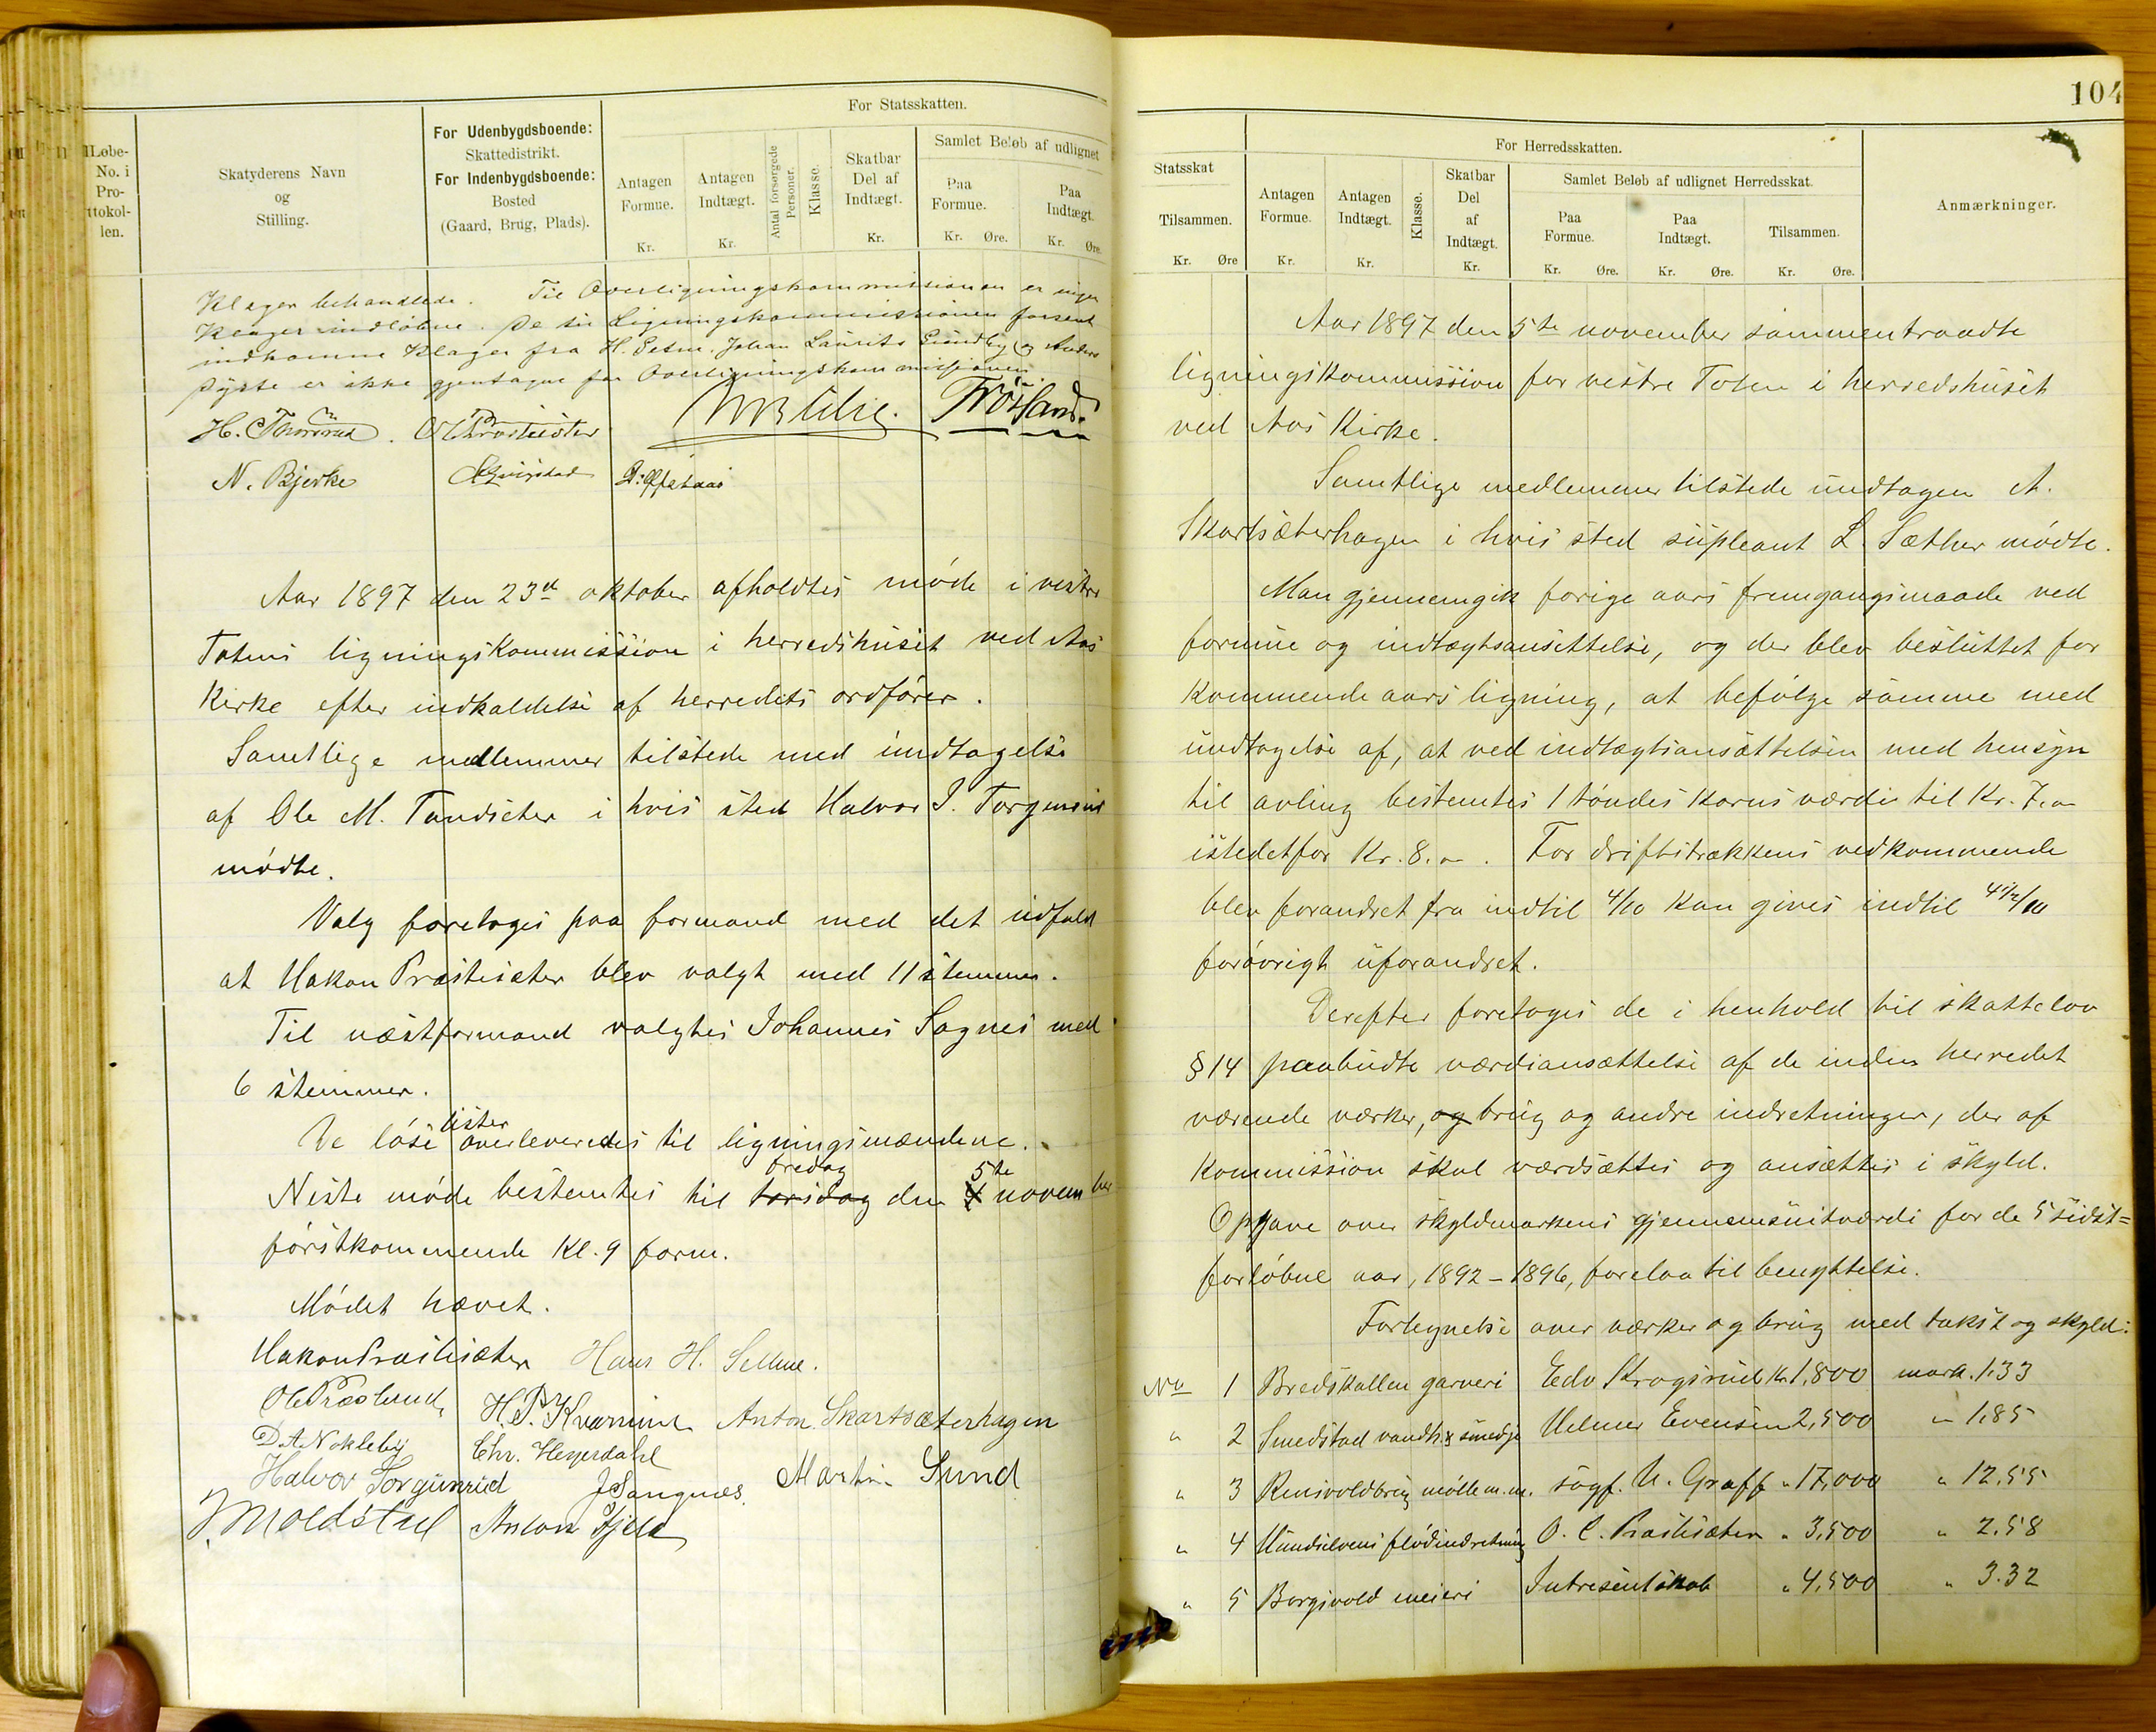 Løbe-
No. i
Pro-
tokol-
len.
Skatyderens Navn
og
Stilling.
For Udenbygdsboende:
Skattedistrikt.
For Indenbygdsboende:
Bosted
(Gaard, Brug, Plads).
For Statsskatten.
Antagen
Formue.
Kr.
Antagen
Indtægt.
Kr.
Antal forsørgede
Personer.
Klasse.
Skatbar
Del af
Indtægt.
Kr.
Samlet Beløb af udlignet
Paa
Formue.
Kr. Øre.
Paa
Indtægt.
Kr. Øre.
Klager behandlede. Til Overligningskommissionen er ingen
Klager indløbne. De til Ligningskommissionen forsent
indkomne Klager fra H. Johan Laurits Sundby og Anders
er ikke gjentagne for Overligningskommissionen.
N. Bjerke
Aar 1897 den 23de oktober afholdtes møde i vestre
Totens ligningskommission i herredshuset ved Aas
Kirke efter indkaldelse af herredets ordfører.
Samtlige medlemmer tilstede med undtagelse
af Ole M. Tandsæter i hvis sted Halvor J. Torgunrud
mødte.
Valg foretoges paa formand med det udfald
at Hakon Præstesæter blev valgt med 11 stemmer.
Til næstformand valgtes Johannes Sognes med
6 stemmer.
De løse lister overleveredes til ligningsmændene.
Neste møde bestemtes til torsdag fredag den 4 5te november
førstkommende Kl. 9 form.
Mødet hævet.
Hakon Præstesæter Hans H. Selme.
Ole Præstrud, H. P. Kvarnum Anton Skartsæterhagen
D. A. Nøkleby Chr. Heyerdahl
Halvor Torgunrud J Sangnes. Martin Sund
J. Moldstad Anton Fjeld
104
Statsskat
Tilsammen.
Kr. Øre
For Herredsskatten.
Antagen
Formue.
Kr.
Antagen
Indtægt.
Kr.
Klasse.
Skatbar
Del
af
Indtægt.
Kr.
Samlet Beløb af udlignet Herredsskat.
Paa
Formue.
Kr. Øre.
Paa
Indtægt.
Kr. Øre.
Tilsammen.
Kr. Øre.
Anmærkninger.
Aar 1897 den 5te november sammentraadte
ligningskommission for vestre Toten i herredshuset
ved Aas Kirke.
Samtlige medlemmer tilstede undtagen A.
Skartsæterhagen i hvis sted supleant L. Sæther mødte.
Man gjennemgik forige aars fremgangsmaade ved
formue og indtægtsansettelse, og der blev besluttet for
kommende aars ligning, at befølge samme med
undtagelse af, at ved indtægtsansættelsen med hensyn
til avling bestemtes 1 tøndes korns værdi til Kr. 7.00
istedetfor Kr. 8.00. For driftstrækkens vedkommende
blev forandret fra indtil 4/10 kan gives indtil 4½/10
forøvrigt uforandret.
Derefter foretoges de i henhold til skattelov
§ 14 paabudte værdiansættelse af de inden herredet
værende værker, og brug og andre indretninger, der af
kommission skal værdsættes og ansættes i skyld.
Opgave over skyldmarkens gjennemsnitsværdi for de 5 sidst=
forløbne aar, 1892-1896, forelaa til benyttelse.
Fortegnelse over værker og brug med takst og skyld:
No 1 Bredskallen garveri Edv Krogsrud Kr 1,800 mark. 1.33
" 2 Smedstad vandh. & smedje Helmer Evensen 2,500 " 1.85
" 3 Reinsvoldbrug mølle m.m. sagf. H. Graff " 17,000 " 12.55
" 4 Hundselvens flødindretning O. C. Præstesæter " 3,500 " 2.58
" 5 Borgsvold meieri Intresentskab " 4,500 " 3.32